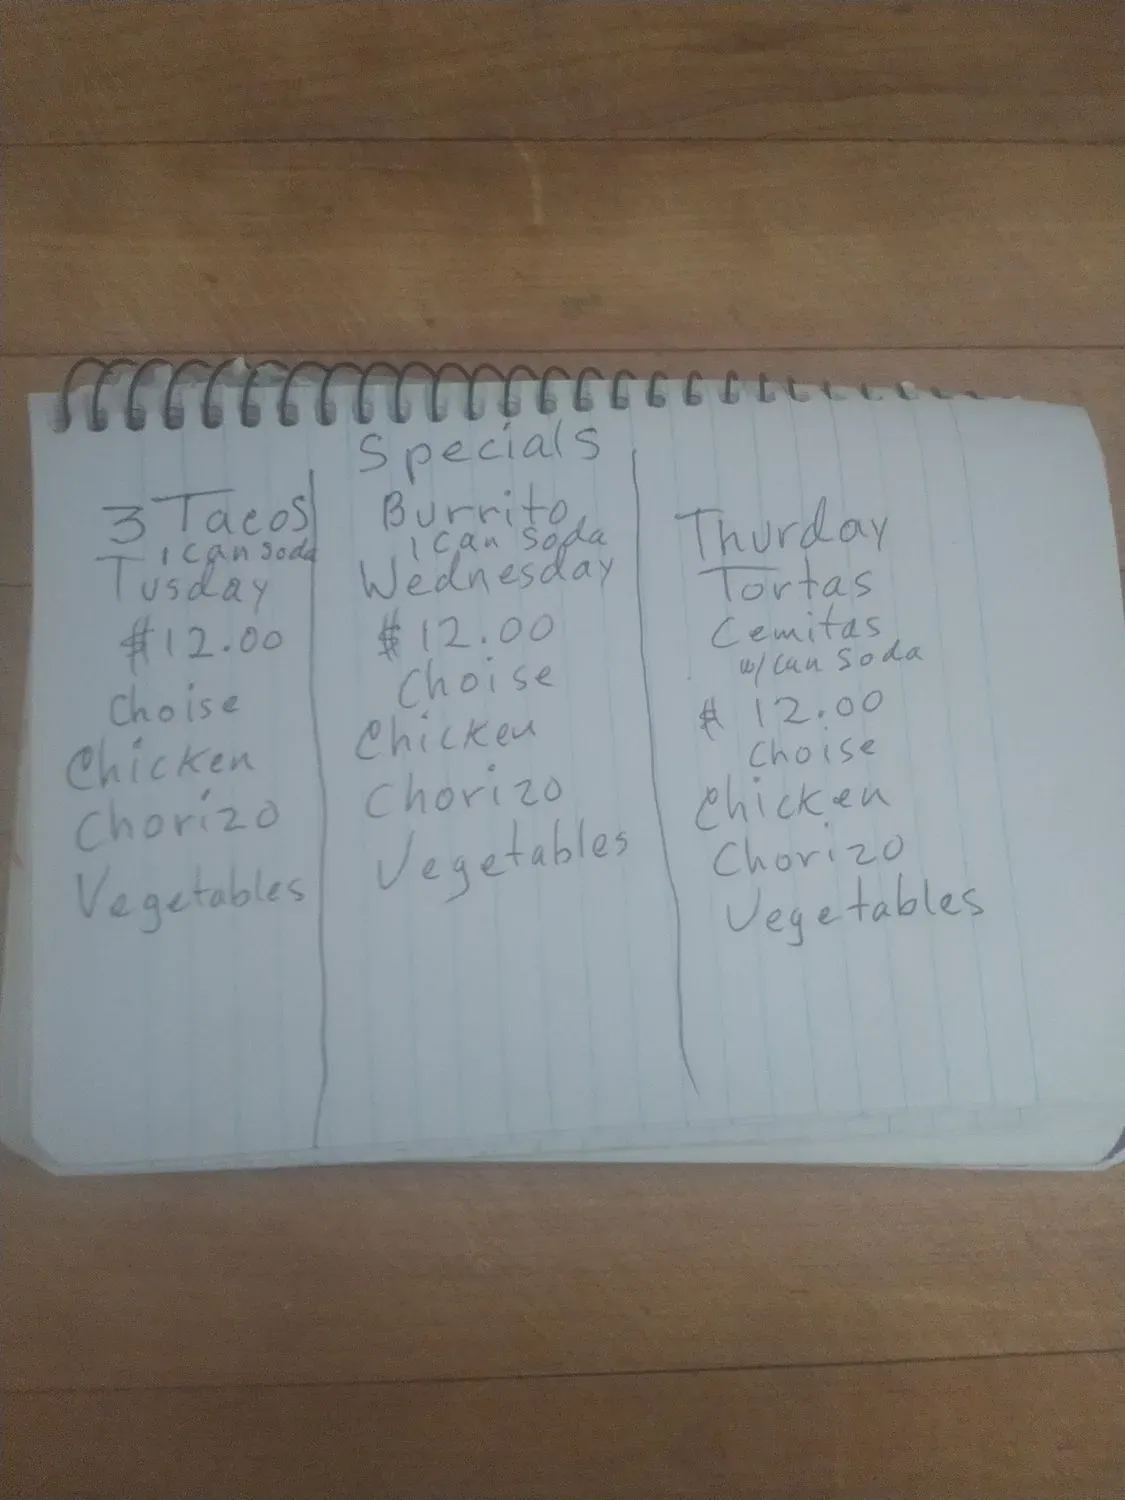 Specials
3 Tacos
1 Can Soda
Tusday
$12.00
Choise
Chicken
Chorizo
Vegetables
Burrito
1 Can Soda
Wednesday
$12.00
Choise
Chicken
Chorizo
Vegetables
Thurday
Tortas
Cemitas
w/ Can Soda
$12.00
Choise
Chicken
Chorizo
Vegetables